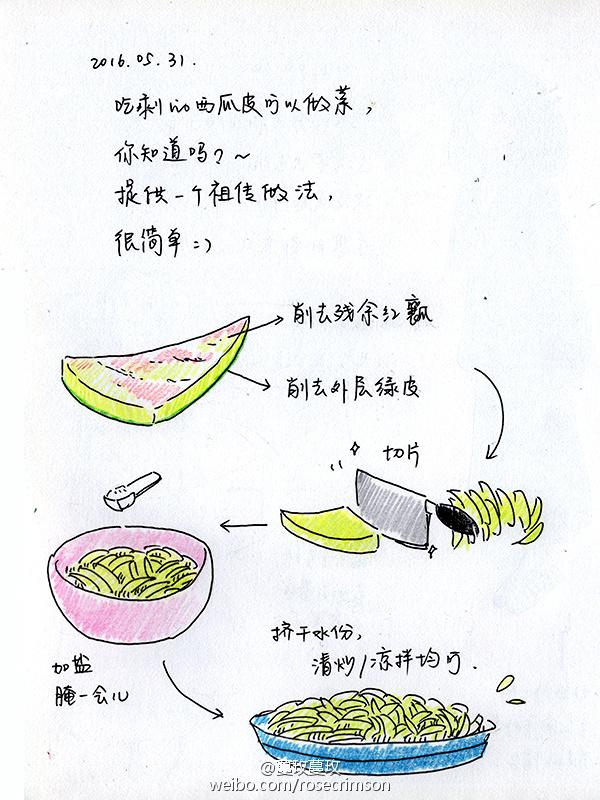 2016.05.31.
吃剩的西瓜皮可以做菜,
你知道吗?~
提供一个祖传做法,
很简单=)
削去残余红瓤
削去外层绿皮
切片
加盐
腌一会儿
挤干水份,
清炒/凉拌均可.
@蔓玫蔓玫
weibo.com/rosecrimson